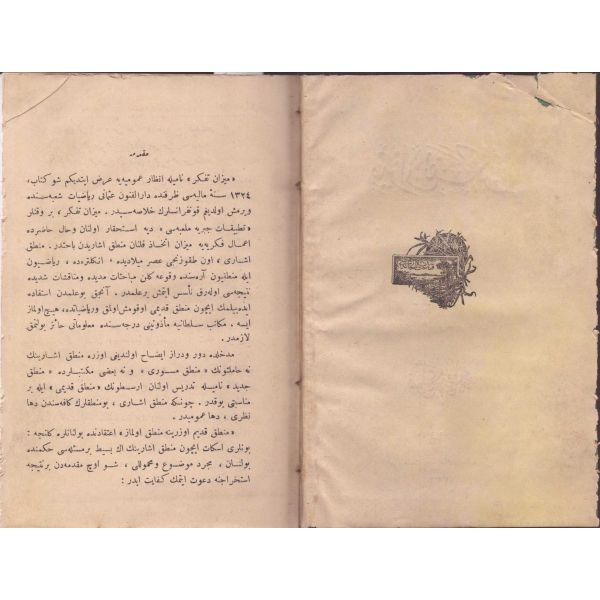 مقدمه
«میزان تفكر» نامیله انظار عمومیه‌یه عرض ایتدیكم شو كتاب،
١٣٢٤ سنهٔ مالیه‌سی ظرفنده دارالفنون عثمانی ریاضیات شعبه‌سنده
ویرمش اولدیغم قونفرانسلرك خلاصه‌سیدر. میزان تفكر، بر وقتلر
«تطبیقات جبریه ملعبه‌سی» دیه استحقار اولنان وحال حاضرده
اعمال فكریه‌یه میزان اتخاذ قلنان منطق اشاریدن باحثدر. منطق
اشاری، اون طقوزنجی عصر میلادیده، انكلتره‌ده، ریاضیون
ایله منطقیون آره‌سنده وقوعه كلن مباحثات مدیده ومناقشات شدیده
نتیجه‌سی اوله‌رق تأسس ایتمش برعلمدر. آنجق بوعلمدن استفاده
ایده‌بیلمك ایچون منطق قدیمی اوقومش‌اولمق وریاضیاتده، هیچ‌اولماز
ایسه، مكاتب سلطانیه مأذونینی درجه‌سنده معلوماتی حائز بولنمق
لازمدر.
مدخلده دور ودراز ایضاح اولندیغی اوزره منطق اشارینك
نه حاملتونك «منطق مسوری» و نه بعضی مكتبلرده «منطق
جدید» نامیله تدریس اولنان ارسطونك «منطق قدیمی» ایله بر
مناسبتی یوقدر. چونكه منطق اشاری، بومنطقلرك كافه‌سندن دها
نظری، دها عمومیدر.
«منطق قدیم اوزرینه منطق اولماز» اعتقادنده بولنانلره كلنجه:
بونلری اسكات ایچون منطق اشارینك اك بسیط برمسئله‌سی حكمنده
بولنان، مجرد موضوع و محمولی، شو اوچ مقدمه‌دن برنتیجه
استخراجنه دعوت ایتمك كفایت ایدر: